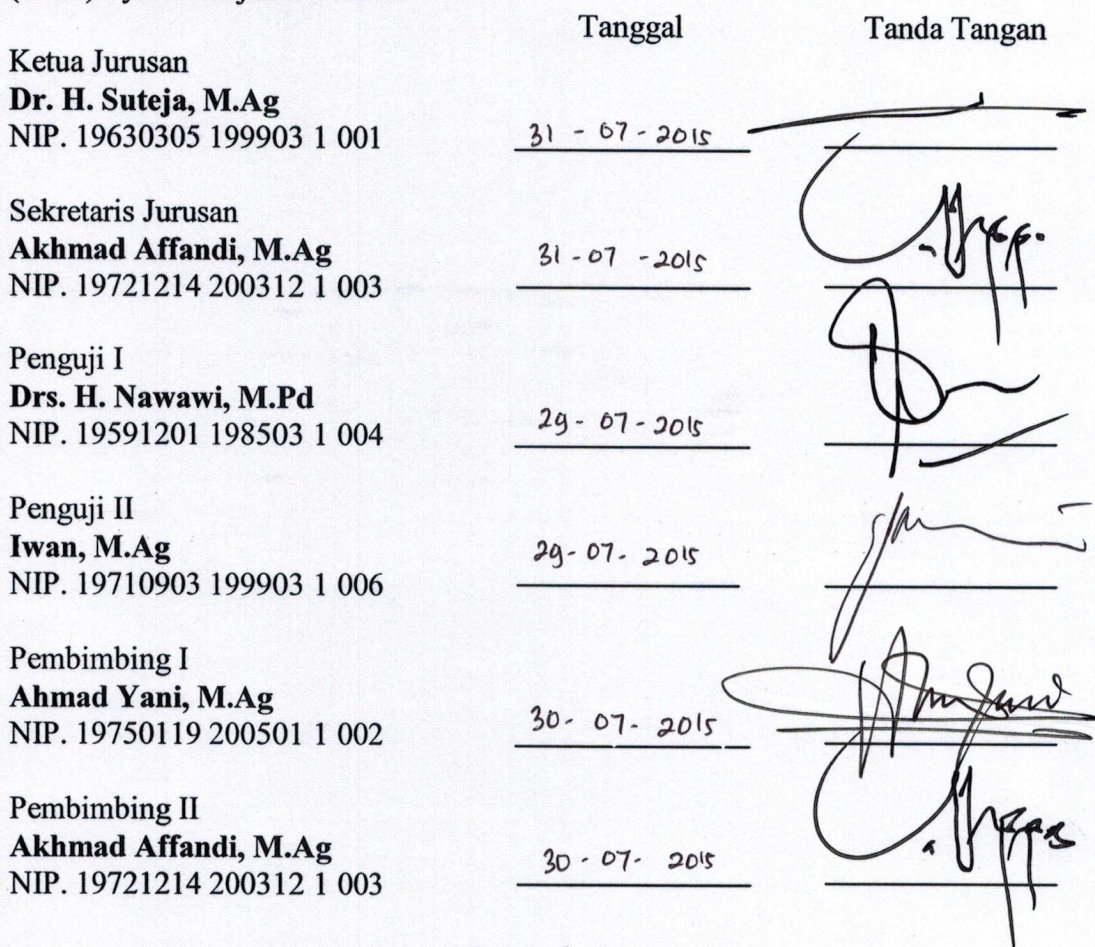 Tanggal Tanda Tangan
Ketua Jurusan
Dr. H. Suteja, M.Ag
NIP. 19630305 199903 1 001 31 - 07 - 2015
Sekretaris Jurusan
Akhmad Affandi, M.Ag
NIP. 19721214 200312 1 003 31 - 07 - 2015
Penguji I
Drs. H. Nawawi, M.Pd
NIP. 19591201 198503 1 004 29 - 07 - 2015
Penguji II
Iwan, M.Ag
NIP. 19710903 199903 1 006 29 - 07 - 2015
Pembimbing I
Ahmad Yani, M.Ag
NIP. 19750119 200501 1 002 30 - 07 - 2015
Pembimbing II
Akhmad Affandi, M.Ag
NIP. 19721214 200312 1 003 30 - 07 - 2015